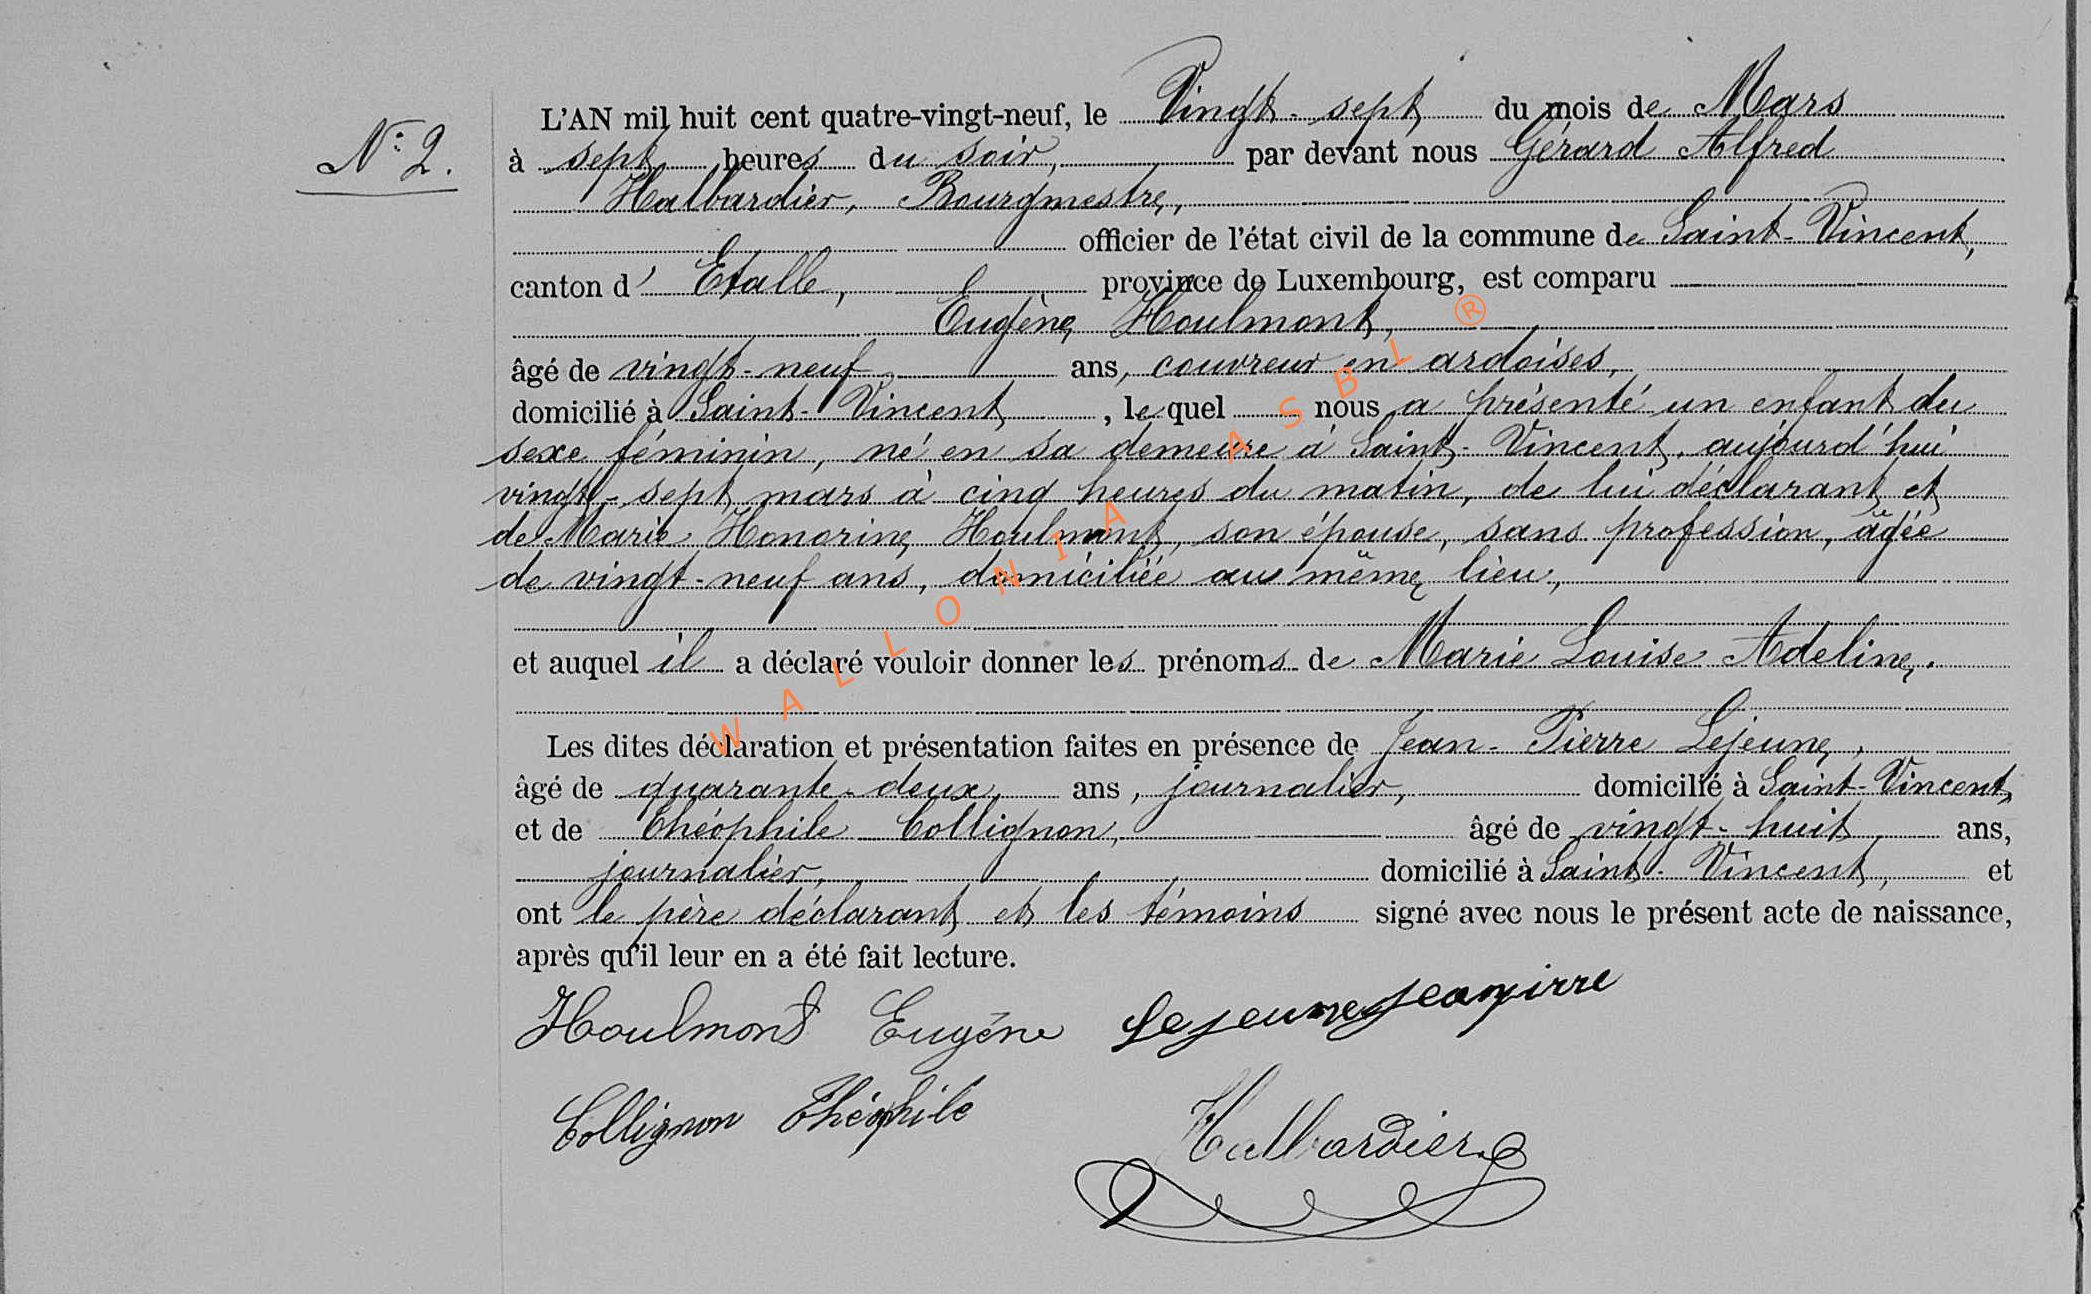 N° 2.
L'AN mil huit cent quatre-vingt-neuf, le Vingt-sept du mois de Mars
à sept heures du soir, par devant nous Gérard Alfred
Halbardier, Bourgmestre,
officier de l'état civil de la commune de Saint-Vincent,
canton d' Etalle, province de Luxembourg, est comparu
Eugène Houlmont,
âgé de vingt-neuf ans, couvreur en ardoises,
domicilié à Saint-Vincent, lequel nous a présenté un enfant du
sexe féminin, né en sa demeure à Saint-Vincent, aujourd'hui
vingt-sept mars à cinq heures du matin, de lui déclarant et
de Marie Honorine Houlmont, son épouse, sans profession, âgée
de vingt-neuf ans, domiciliée au même lieu,
et auquel il a déclaré vouloir donner les prénoms de Marie Louise Adeline.
Les dites déclaration et présentation faites en présence de Jean-Pierre Lejeune,
âgé de quarante-deux ans, journalier, domicilié à Saint-Vincent,
et de Théophile Collignon, âgé de vingt-huit ans,
journalier, domicilié à Saint-Vincent, et
ont le père déclarant et les témoins signé avec nous le présent acte de naissance,
après qu'il leur en a été fait lecture.
Houlmont Eugène Lejeune Jeanpirre
Collignon Théophile Halbardier
WALLONIA ASBL ®